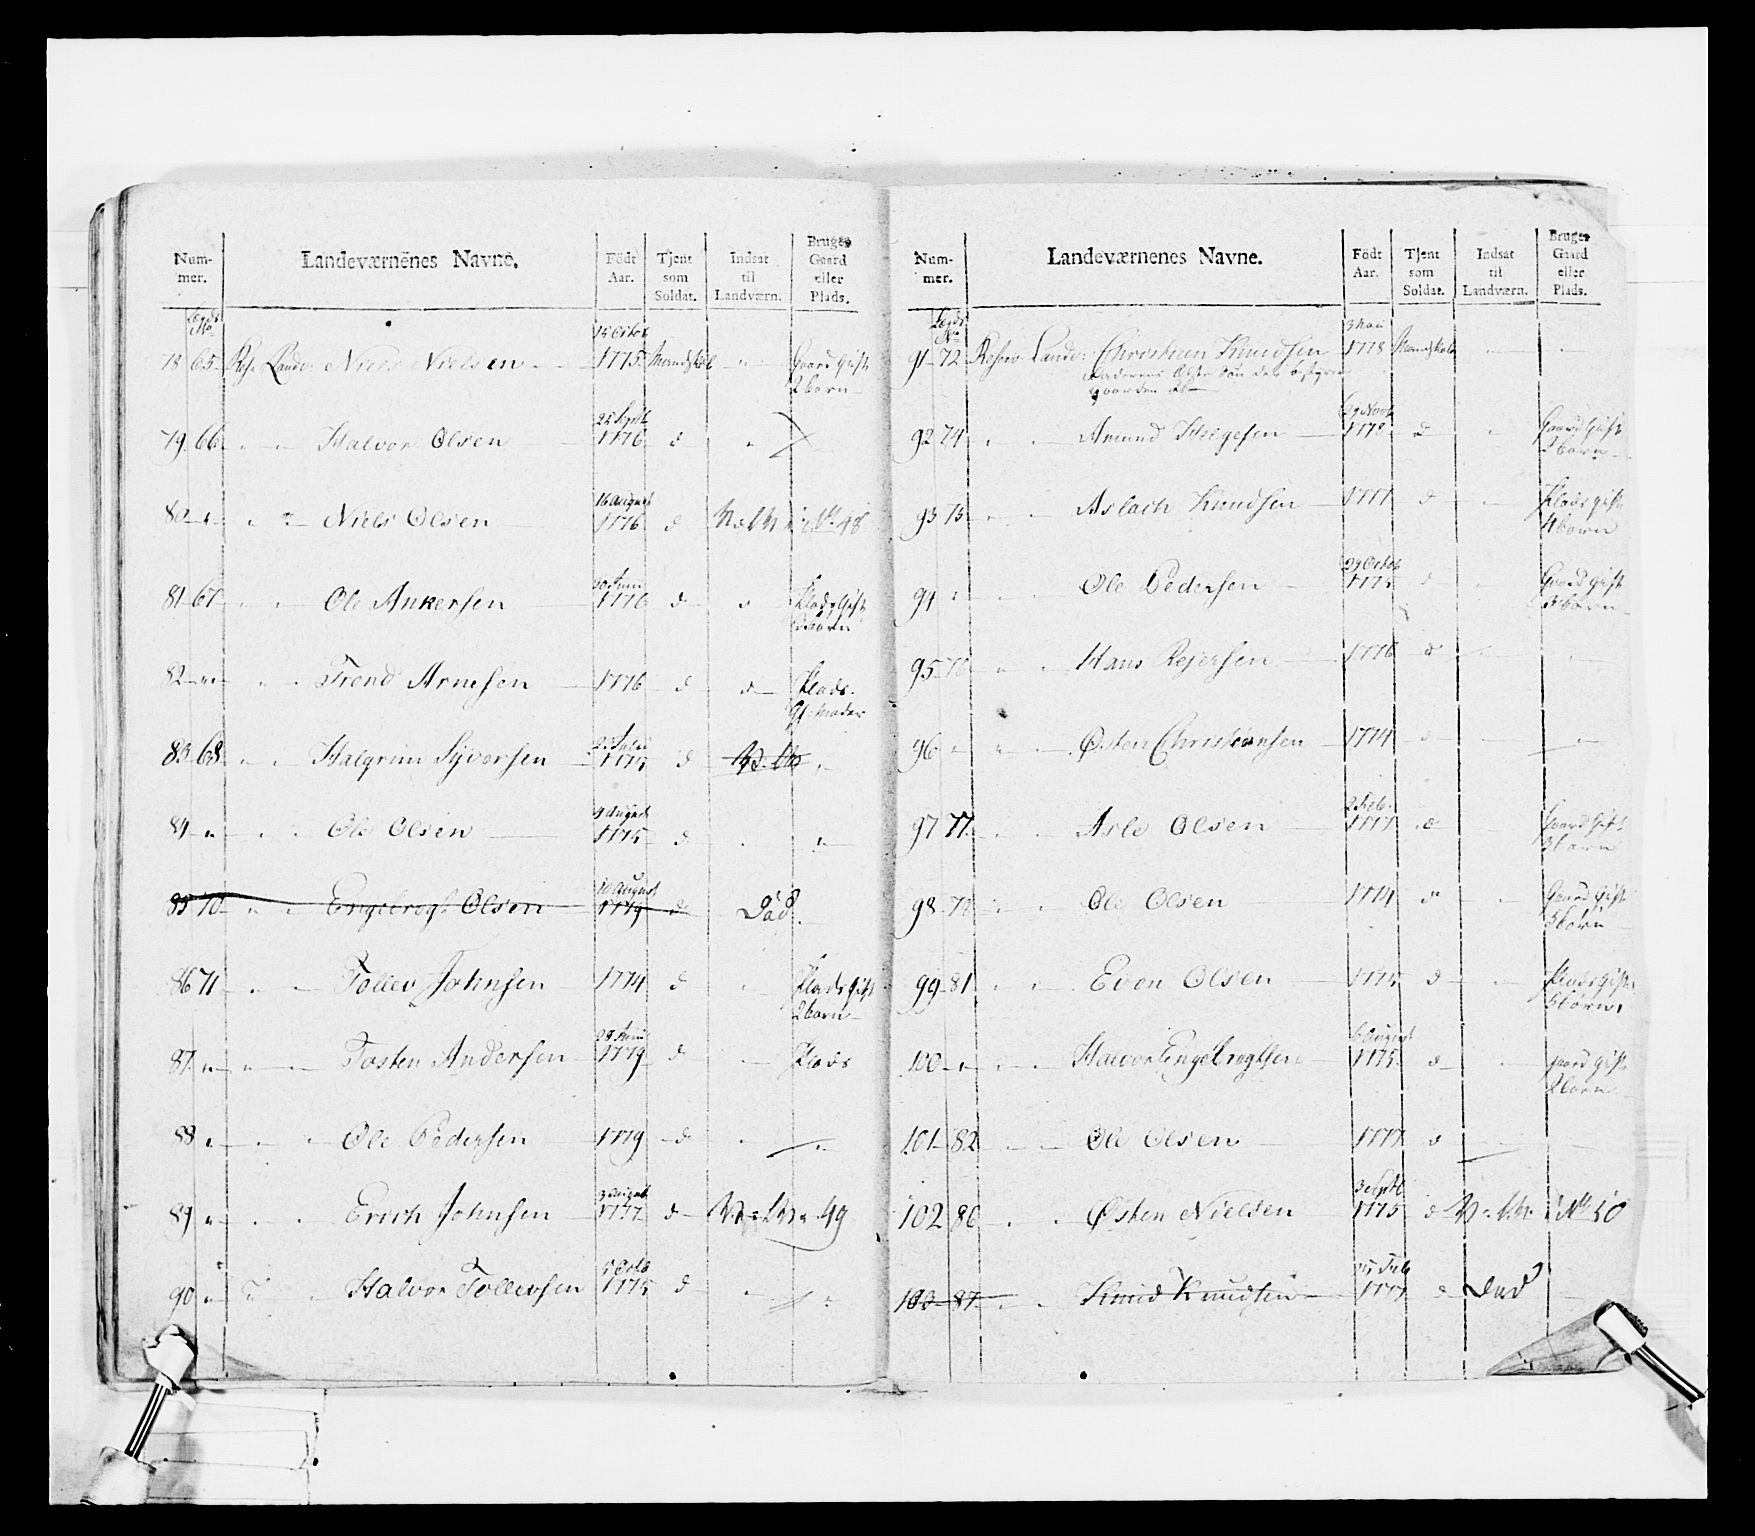 Num-
mer.
Landeværnenes Navne.
Födt
Aar.
Tjent
som
Soldat.
Indsat
til
Landværn.
Bruger
Gaard
eller
Plads.
Lægds
No
15 Octob
78 65 Res. Landv. Niels Nielsen 1775 Mandskab " Gaard Gift
2 børn
25 Septb
79 66 " " Halvor Olsen 1776 d "
16 August
80 " " " Niels Olsen 1776 d No 48
10 Juni
81 67 " " Ole Ankersen 1776 d " Plads Gift
børn
82 " " " Trond Arnesen 1776 d " Plads.
Gl: Moder
83 68 " " Halgrim Syversen 1775 d "
9 August
84 " " " Ole Olsen 1775 d " "
10 August
85 70 " " Engebregt Olsen 1779 d Död
86 71 " " Tollev Johnsen 1774 d " Plads Gift
2 børn
Juni
87 " " " Tosten Andersen 1779 d " Plads
88 " " " Ole Pedersen 1779 d " "
3 August
89 " " " Erich Johnsen 1777 d 49
5 Octb
90 " " " Halvor Tollevsen 1775 d " "
Num-
mer.
Landeværnenes Navne.
Födt
Aar.
Tjent
som
Soldat.
Indsat
til
Landværn.
Bruger
Gaard
eller
Plads.
Lægds
No
3 Mai
91 72 Reserv. Landv: Christian Knudsen 1778 Mandskab " "
29 Novb
92 74 " " Amund Helgesen 1778 d " Gaard Gift
2 børn
93 75 " " Aslach Knudsen 1777 d " Plads gift
4 børn
29 Octob
94 " " " Ole Pedersen 1775 d " Gaard gift
3 børn
95 76 " " Hans Rejersen 1776 d " "
96 " " " Østen Christiansen 1774 d " "
2 Feb.
97 77 " " Asle Olsen 1777 d " Gaard Gift
3 børn
98 78 " " Ole Olsen 1774 d " Gaard gift
3 børn
99 81 " " Even Olsen 1775 d " Plads Gift
3 børn
6 August
100 " " " Halvor Engebregtsen 1775 d " gaard gift
2 børn
101 82 " " Ole Olsen 1777 d "
3 Septb
102 86 " " Østen Nielsen 1775 d No 50
25 Julii
103 87 " " Knud Knudsen 1777 d Död